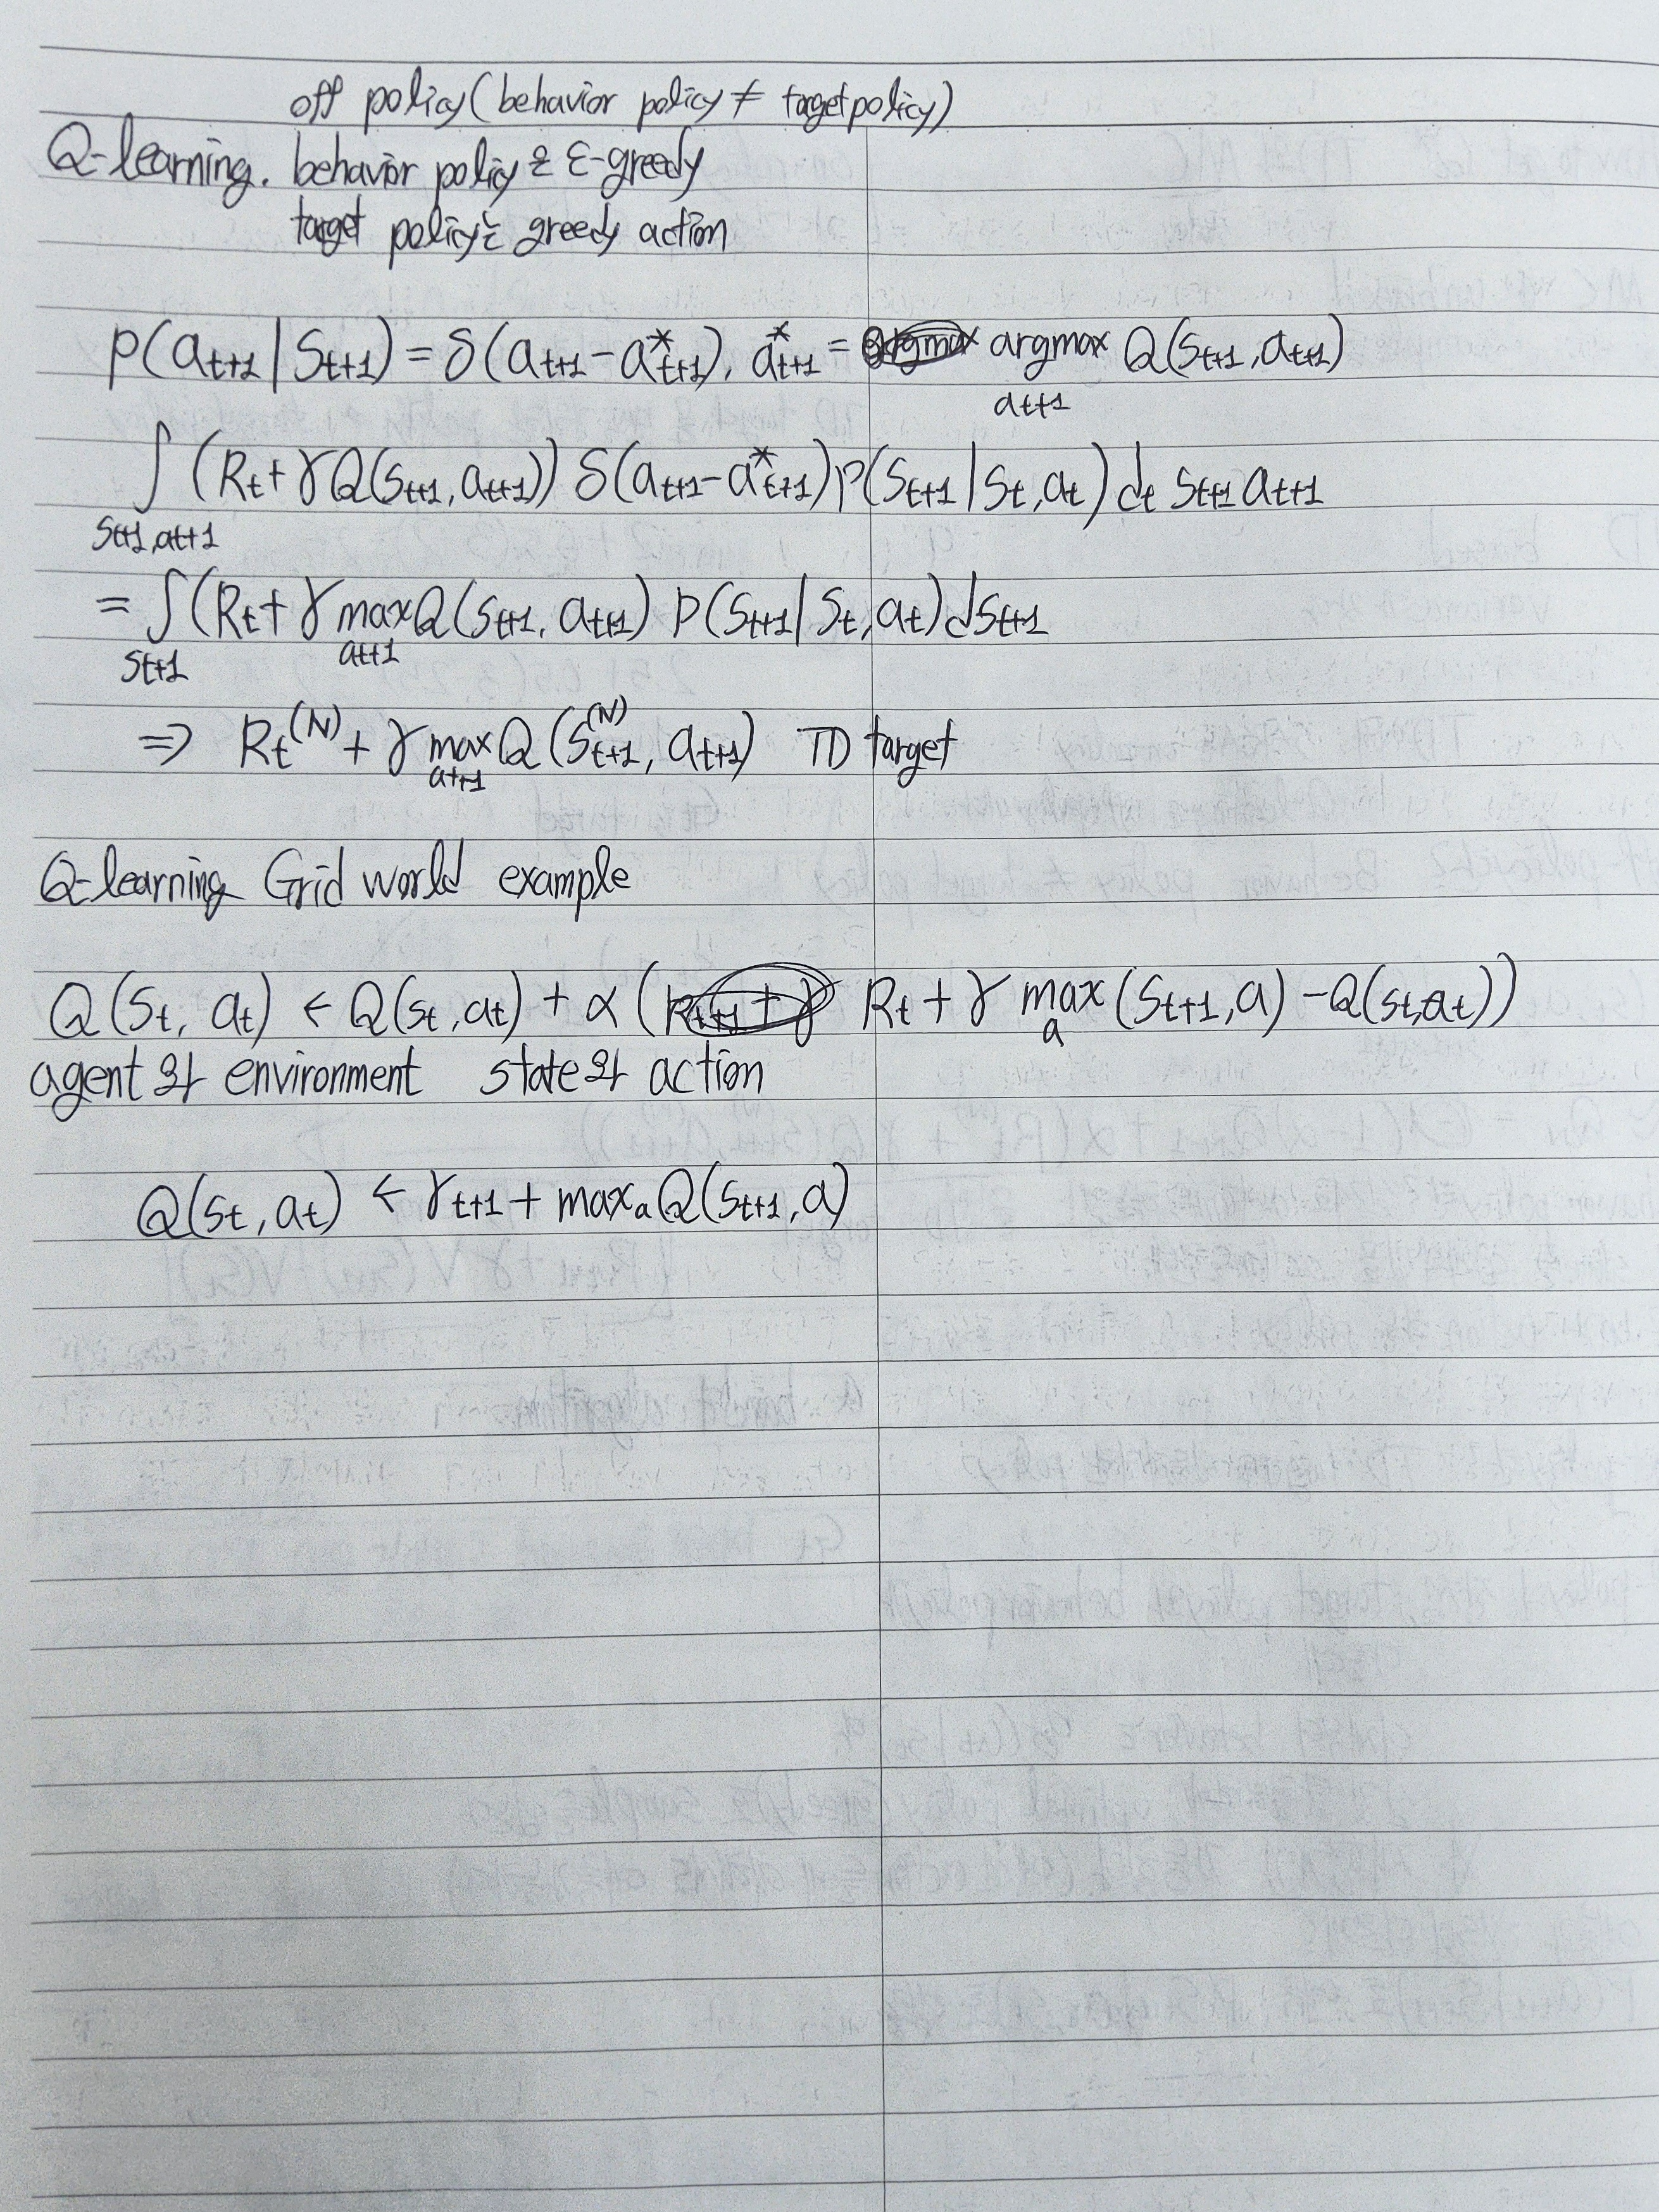 off policy (behavior policy ≠ target policy)
Q-learning. behavior policy는 ε-greedy
target policy는 greedy action
p(a_{t+1} | S_{t+1}) = δ(a_{t+1} - a*_{t+1}), a*_{t+1} = argmax_{a_{t+1}} Q(S_{t+1}, a_{t+1})
∫_{S_{t+1}, a_{t+1}} (R_t + γQ(S_{t+1}, a_{t+1})) δ(a_{t+1} - a*_{t+1}) p(S_{t+1} | S_t, a_t) d_t S_{t+1} a_{t+1}
= ∫_{S_{t+1}} (R_t + γ max_{a_{t+1}} Q(S_{t+1}, a_{t+1}) p(S_{t+1} | S_t, a_t) dS_{t+1}
⇒ R_t^{(N)} + γ max_{a_{t+1}} Q(S_{t+1}^{(N)}, a_{t+1}) TD target
Q-learning Grid world example
Q(S_t, a_t) ← Q(S_t, a_t) + α (R_t + γ max_a (S_{t+1}, a) - Q(S_t, a_t))
agent와 environment state와 action
Q(S_t, a_t) ← γ_{t+1} + max_a Q(S_{t+1}, a)